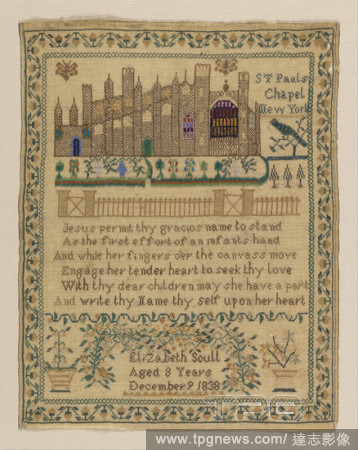 St Pauls
Chapel
New York
Jesus permit thy gracios name to stand
As the first effort of an infants hand
And while her fingers o'er the canvass move
Engage her tender heart to seek thy love
With thy dear children may she have a part
And write thy Name thy self upon her heart
Elizabeth Soull
Aged 8 Years
December 9 1838
www.tpgnews.com/ 達志影像